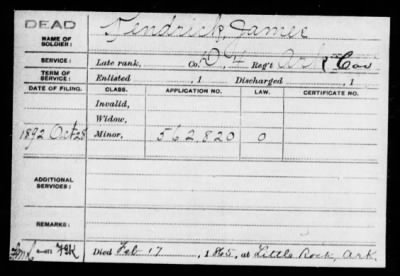 DEAD
NAME OF SOLDIER: Kendrick, James
SERVICE: Late rank, Co. D, 4 Reg't Ark Cav
TERM OF SERVICE: Enlisted , 1 Discharged , 1
DATE OF FILING. CLASS. APPLICATION NO. LAW. CERTIFICATE NO.
Invalid,
Widow,
1892 Oct 28 Minor, 562,820 0
ADDITIONAL SERVICES:
REMARKS:
Died Feb 17, 1865, at Little Rock, Ark.